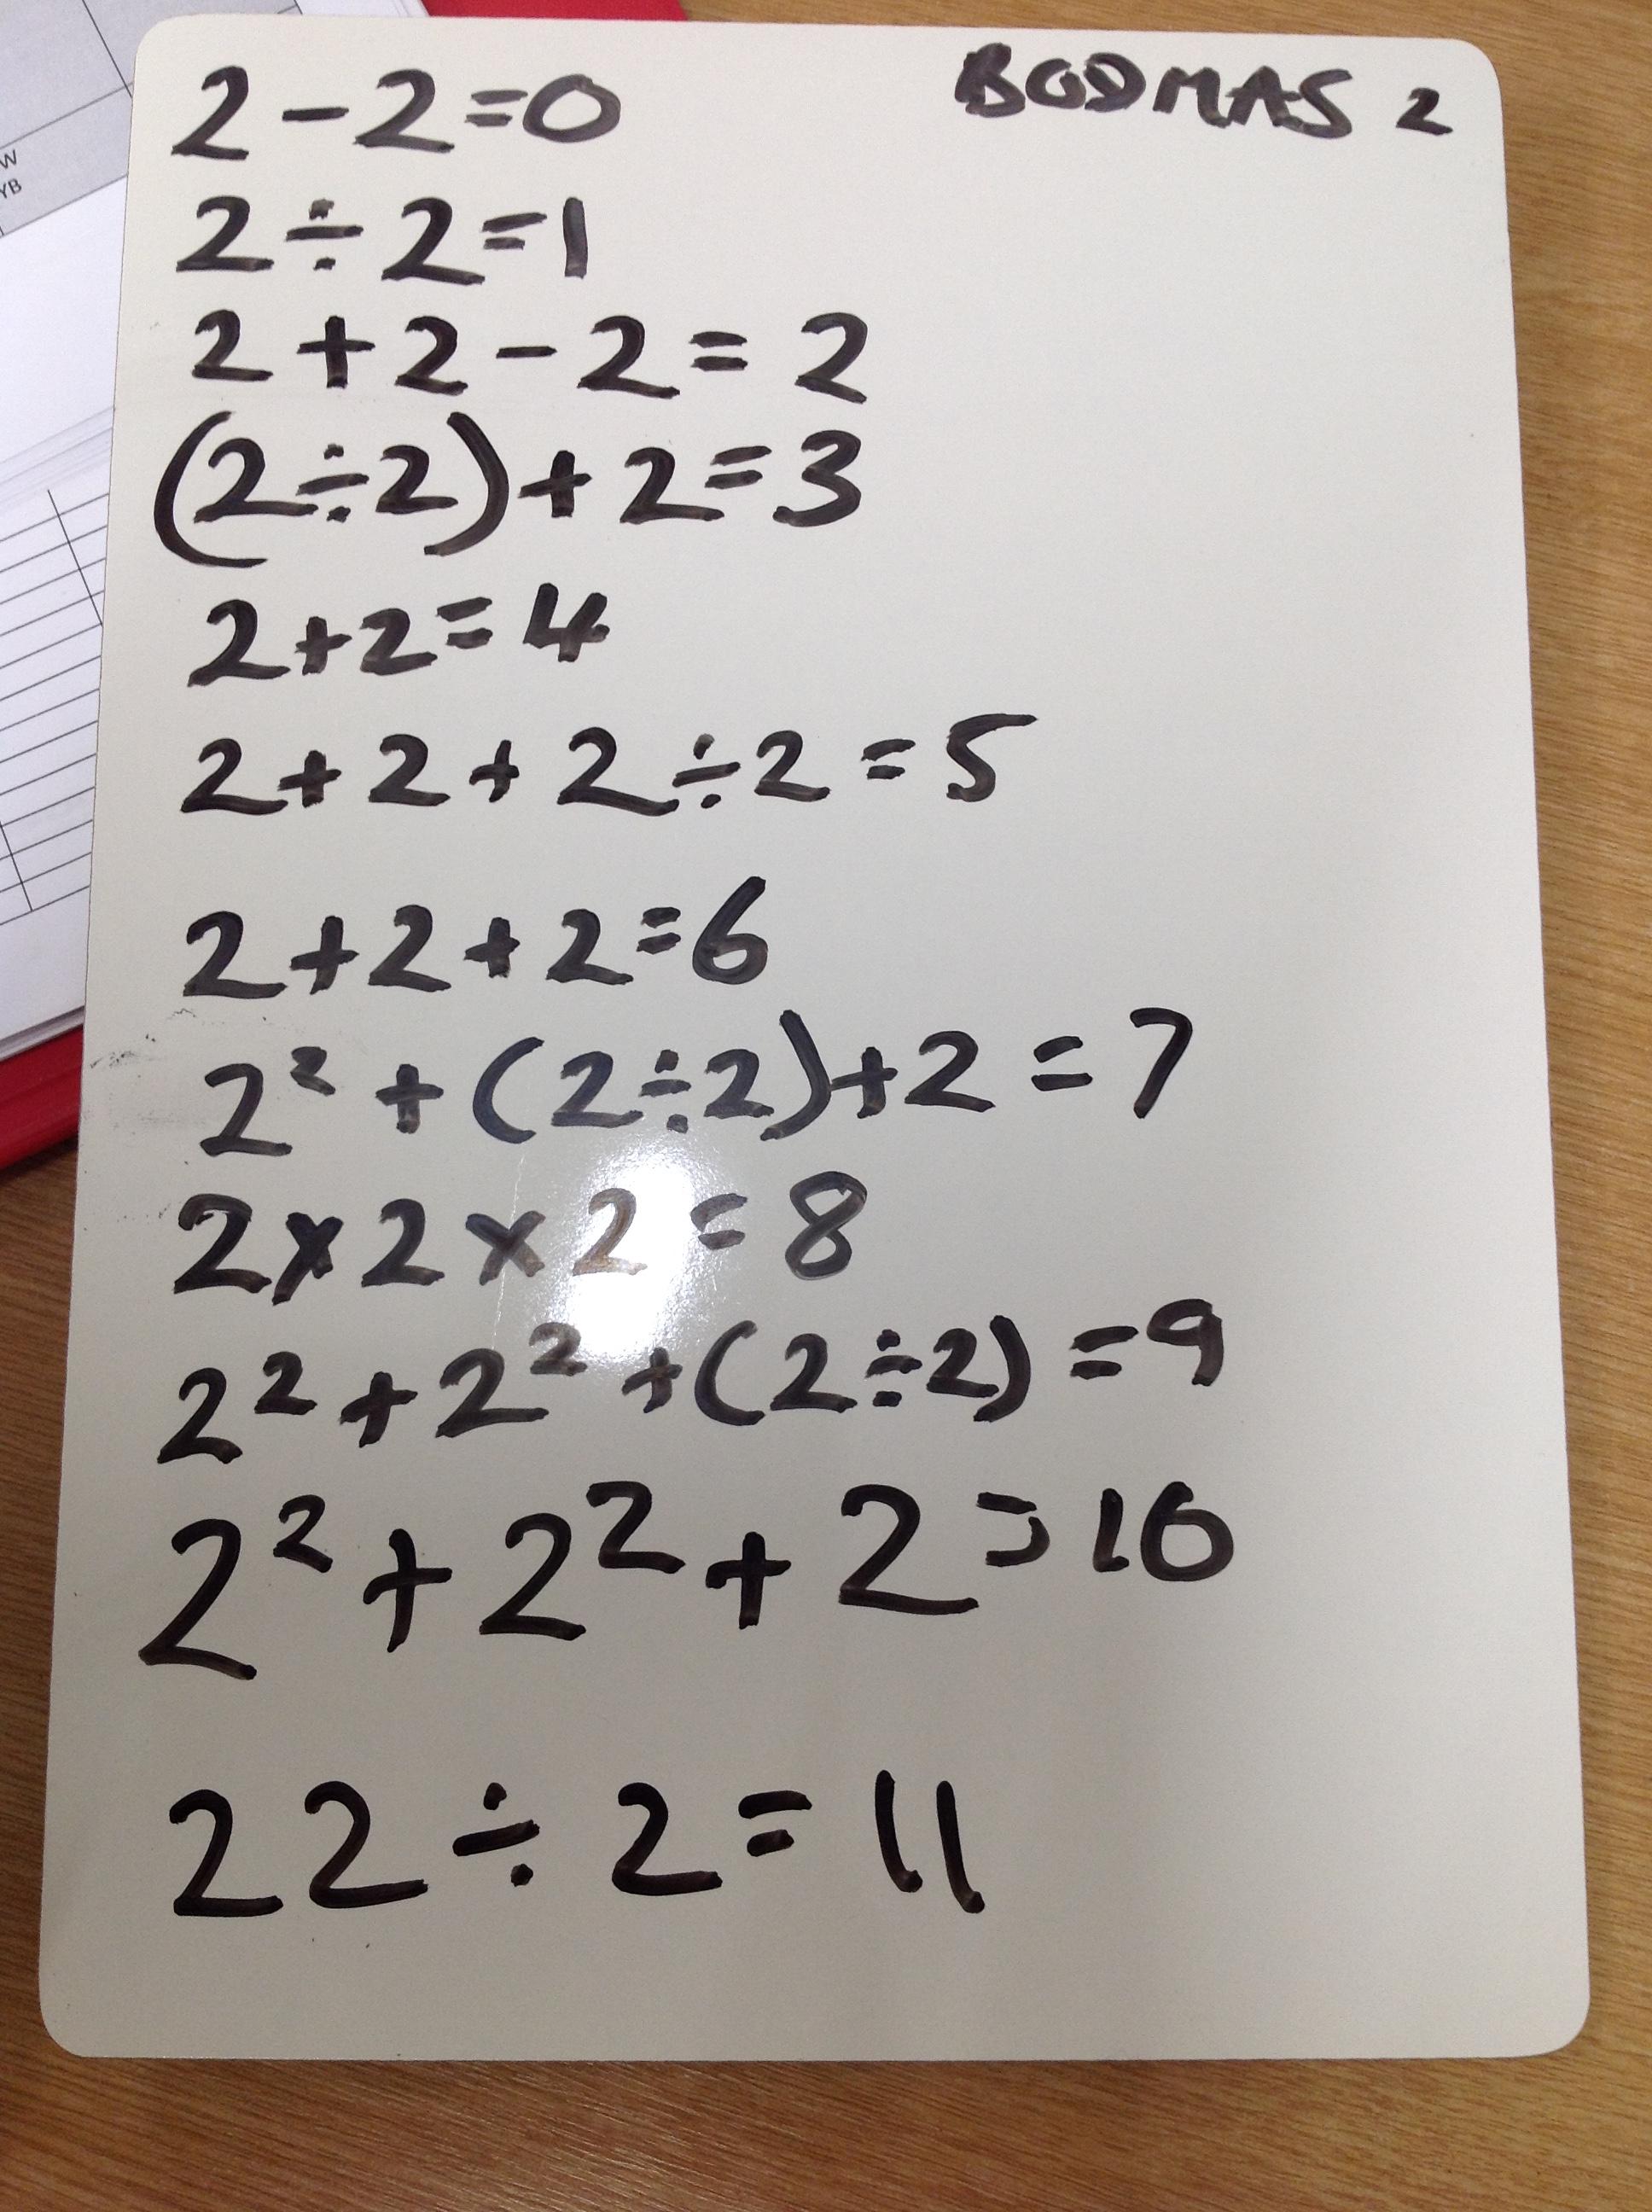 BODMAS 2
2 - 2 = 0
2 ÷ 2 = 1
2 + 2 - 2 = 2
(2 ÷ 2) + 2 = 3
2 + 2 = 4
2 + 2 + 2 ÷ 2 = 5
2 + 2 + 2 = 6
2² + (2 ÷ 2) + 2 = 7
2 × 2 × 2 = 8
2² + 2² + (2 ÷ 2) = 9
2² + 2² + 2 = 10
22 ÷ 2 = 11
W
YB